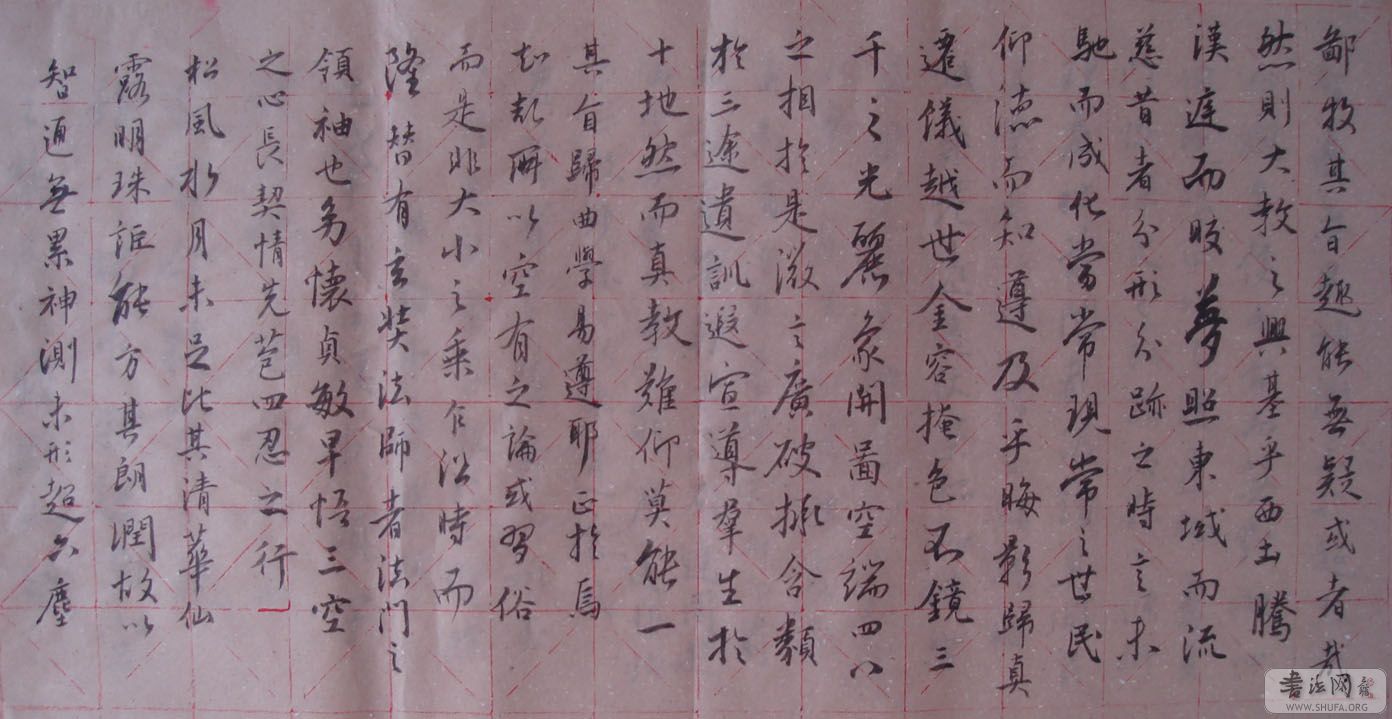 鄙投其旨趣能無疑或者哉
然則大教之興基乎西土騰
漢庭而晈夢照東域而流
慈昔者分形分跡之時言未
馳而成化當常現常之世民
仰德而知遵及乎晦影歸真
遷儀越世金容掩色不鏡三
千之光麗象開圖空端四八
之相於是微言廣破拯含類
於三途遺訓遐宣導群生於
十地然而真教難仰莫能一
其旨歸曲學易遵耶正於焉
所以空有之論或習俗
而是非大小之乘乍沿時而
隆替有玄奘法師者法門之
領袖也幼懷貞敏早悟三空
之心長契情先苞四忍之行
松風水月未足比其清華仙
露明珠詎能方其朗潤故以
智通無累神測未形超六塵
書法网
WWW.SHUFA.ORG